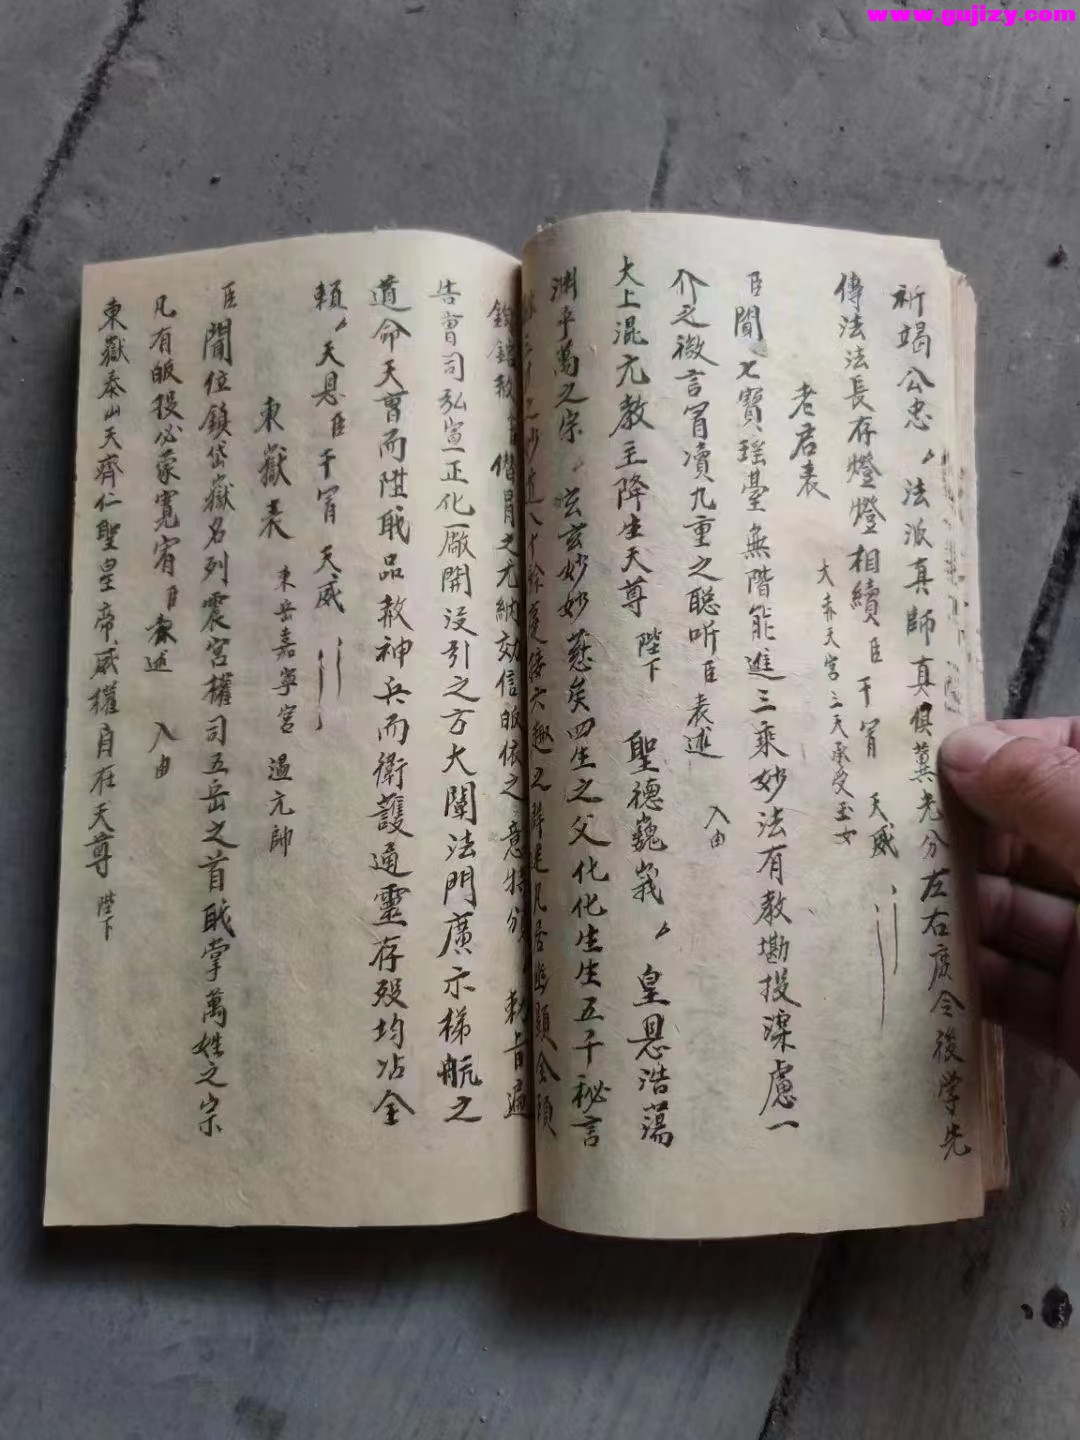 www.gujizy.com
祈竭公忠〻法派真師真俱冀光分左右庶令後学先
傳法法長存燈燈相續臣干冒 天威
老君表 大赤天宮三天承受玉女
臣聞七寶瑶臺無階能進三乘妙法有教堪投深慮一
介之微言冒瀆九重之聪听臣 表述 入由
大上混元教主降生天尊 陛下 聖德巍峩〻皇恩浩蕩
渊乎萬之宗〻玄玄妙妙慈矣四生之父化化生生五千秘言
之妙道八十餘 接六趣之 凡 顯金頭
楷冒之尤納効信皈依之意特 勅旨遍
告曹司弘宣正化廠開设引之方大闡法門廣示梯航之
道命天曹而陞職品敕神兵而衛護通靈存殁均沾全
賴〻天恩臣干冐 天威
東嶽表 東岳嘉寧宮 温元帥
臣聞位鎮岱嶽名列震宮權司五岳之首职掌萬姓之宗
凡有皈投必蒙寬宥 表述 入由
東嶽泰山天齊仁聖皇帝威權自在天尊 陛下